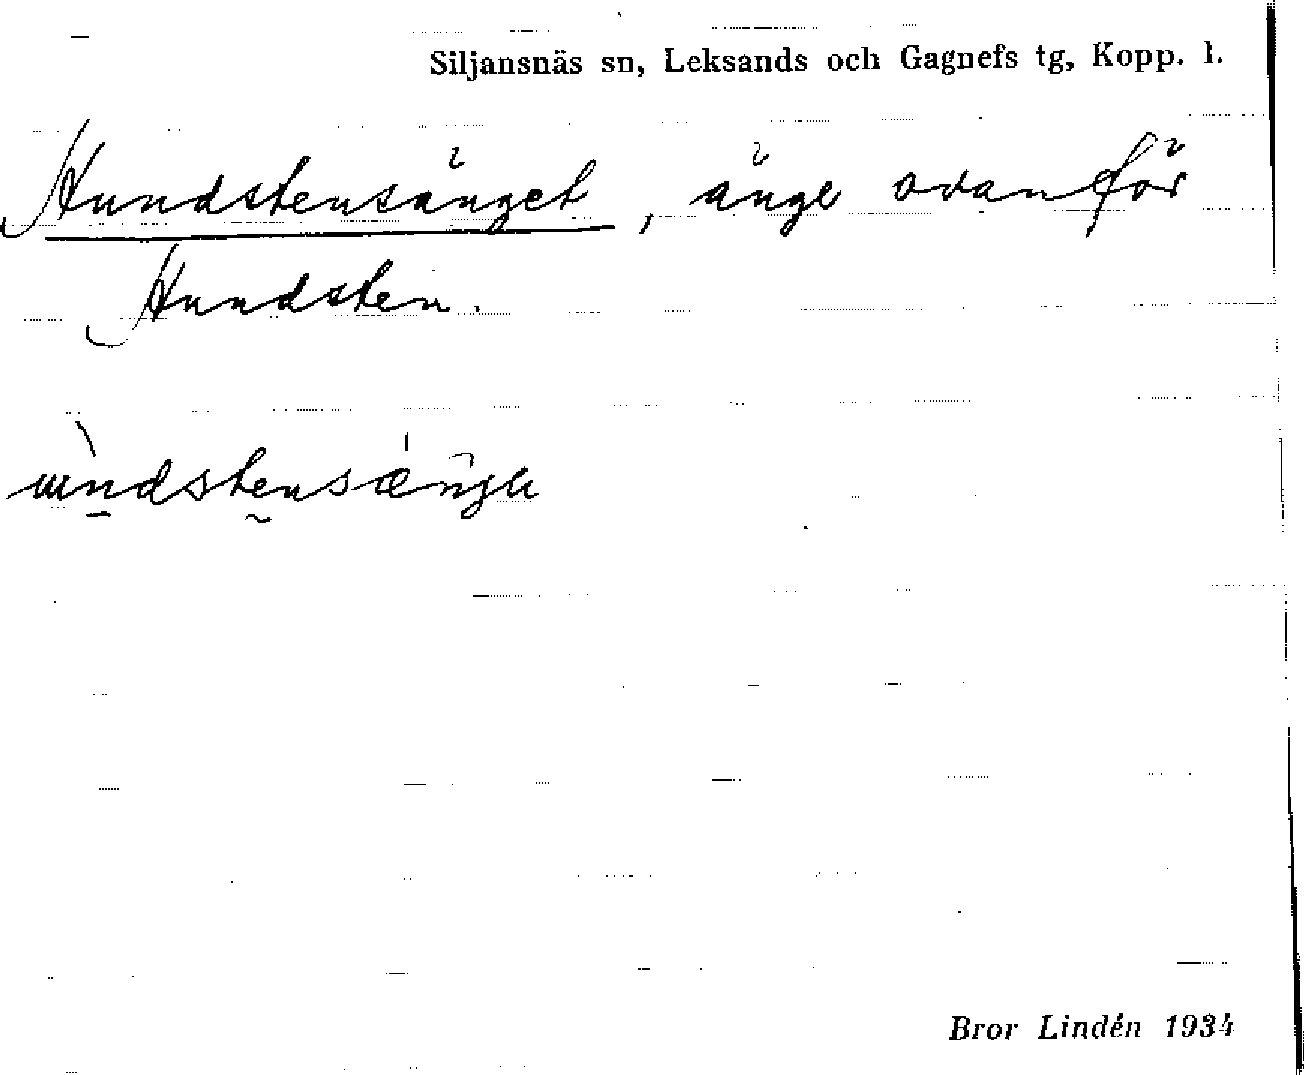 Siljansnäs sn, Leksands och Gagnefs tg, Kopp. l.
Hundstensänget, änge ovanför
Hundsten.
Bror Lindén 1934